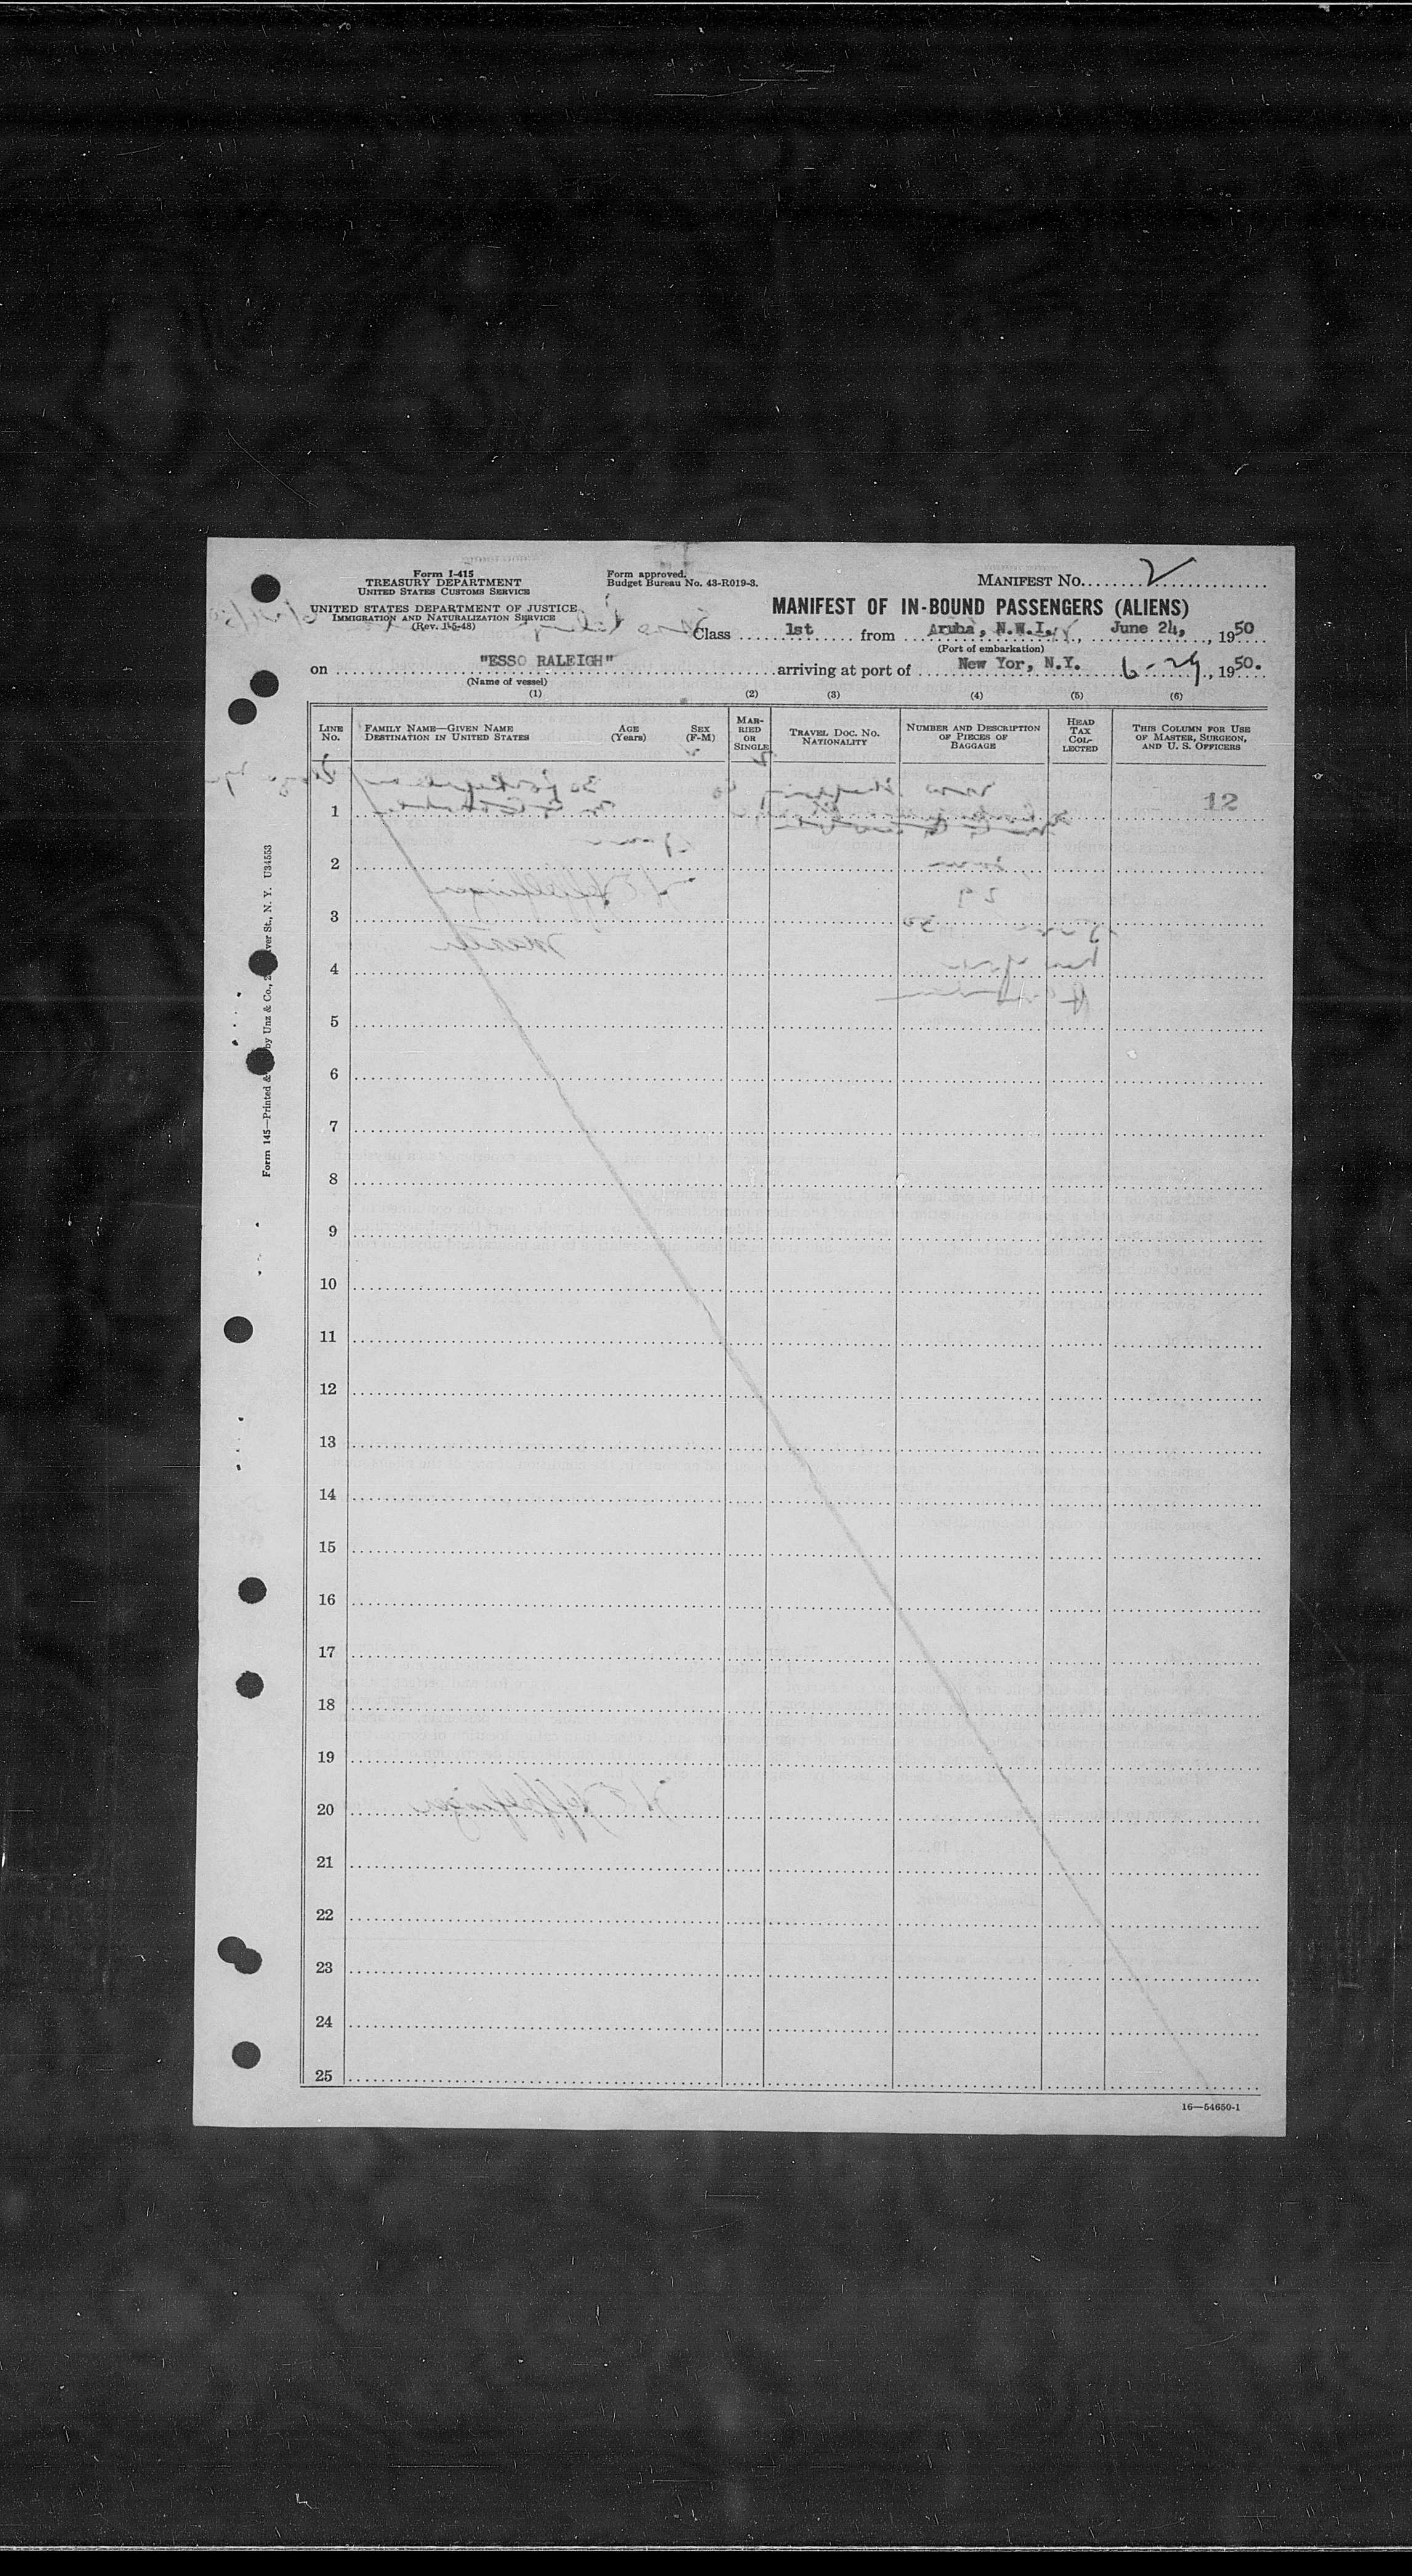 Form I-415
TREASURY DEPARTMENT
UNITED STATES CUSTOMS SERVICE
UNITED STATES DEPARTMENT OF JUSTICE
IMMIGRATION AND NATURALIZATION SERVICE
(Rev. 1-5-48)
Form approved.
Budget Bureau No. 43-R019-3.
MANIFEST No. 2
MANIFEST OF IN-BOUND PASSENGERS (ALIENS)
Class 1st from Aruba, N.W.I., June 24, 1950
(Port of embarkation)
on "ESSO RALEIGH" arriving at port of New Yor, N.Y. 6-29, 1950.
(Name of vessel)
(1) (2) (3) (4) (5) (6)
LINE No.
FAMILY NAME—GIVEN NAME
DESTINATION IN UNITED STATES
AGE (Years)
SEX (F-M)
MARRIED OR SINGLE
TRAVEL DOC. NO.
NATIONALITY
NUMBER AND DESCRIPTION OF PIECES OF BAGGAGE
HEAD TAX COLLECTED
THIS COLUMN FOR USE OF MASTER, SURGEON, AND U. S. OFFICERS
12
1
2
3
4
5
6
7
8
9
10
11
12
13
14
15
16
17
18
19
20
21
22
23
24
25
Form 145—Printed & by Unz & Co., ver St., N. Y. U34553
16—54650-1